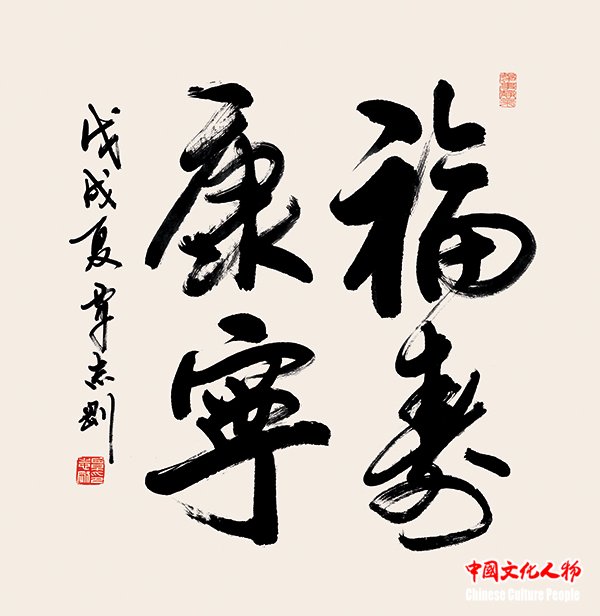 福壽
康寧
戊戌夏覃志剛
中國文化人物
Chinese Culture People